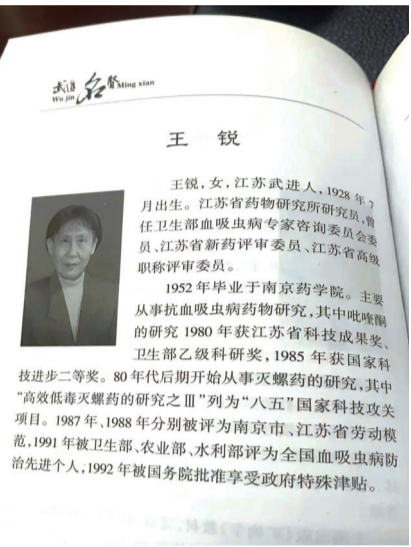 武进名贤
Wu jin Ming xian
王 锐
王锐,女,江苏武进人,1928年7
月出生。江苏省药物研究所研究员,曾
任卫生部血吸虫病专家咨询委员会委
员、江苏省新药评审委员、江苏省高级
职称评审委员。
1952年毕业于南京药学院。主要
从事抗血吸虫病药物研究,其中吡喹酮
的研究1980年获江苏省科技成果奖、
卫生部乙级科研奖,1985年获国家科
技进步二等奖。80年代后期开始从事灭螺药的研究,其中
“高效低毒灭螺药的研究之Ⅲ”列为“八五”国家科技攻关
项目。1987年、1988年分别被评为南京市、江苏省劳动模
范,1991年被卫生部、农业部、水利部评为全国血吸虫病防
治先进个人,1992年被国务院批准享受政府特殊津贴。